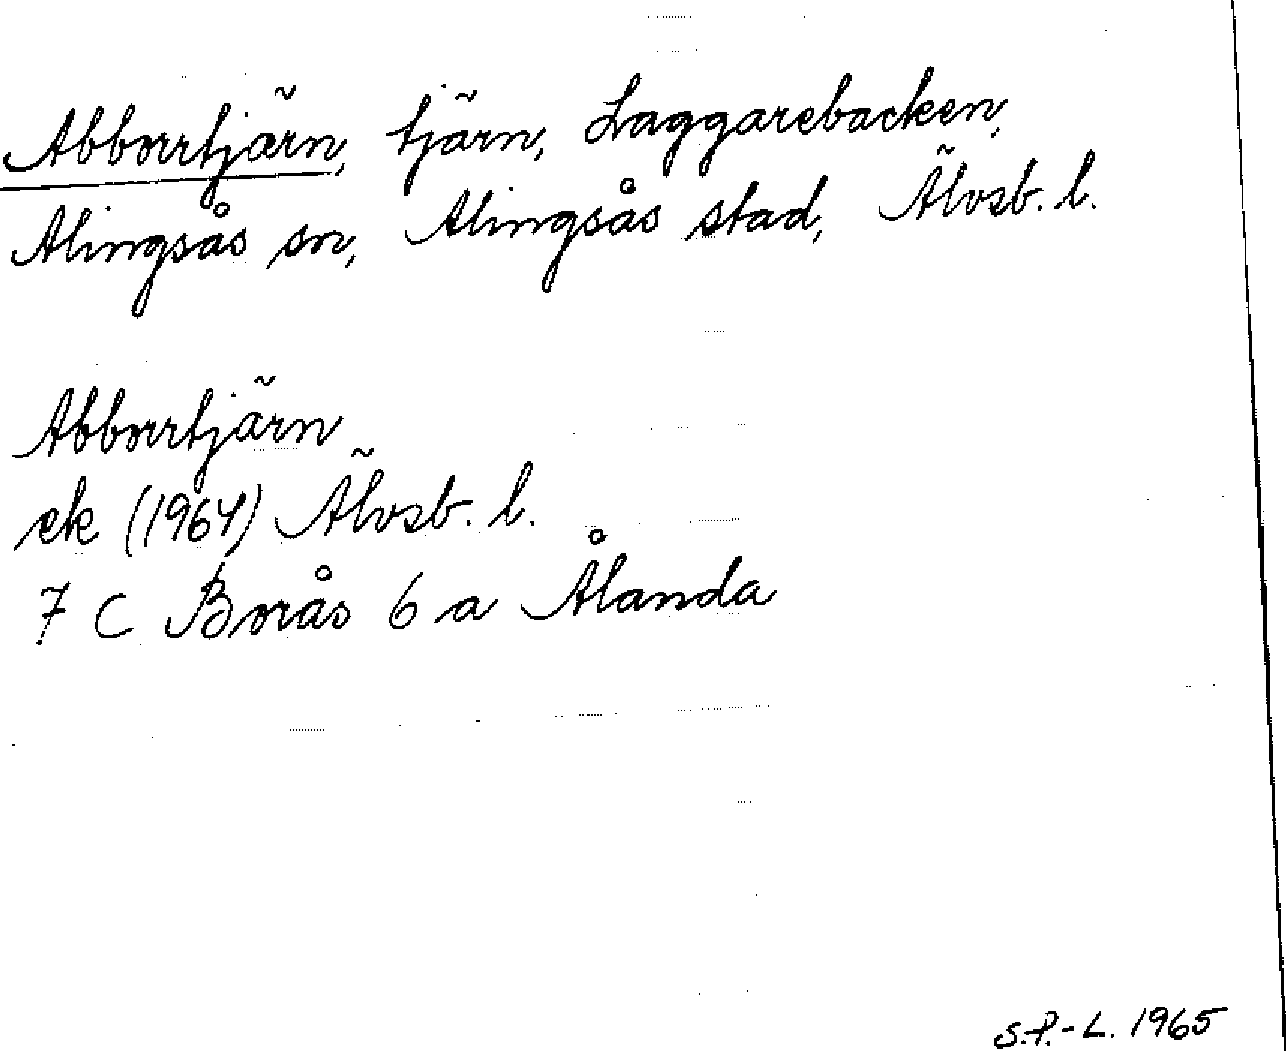 Abborrtjärn, tjärn, Laggarebacken,
Alingsås sn, Alingsås stad, Älvsb. l.
Abborrtjärn
ek (1964) Älvsb. l.
7 C Borås 6 a Ålanda
S.P.-L. 1965